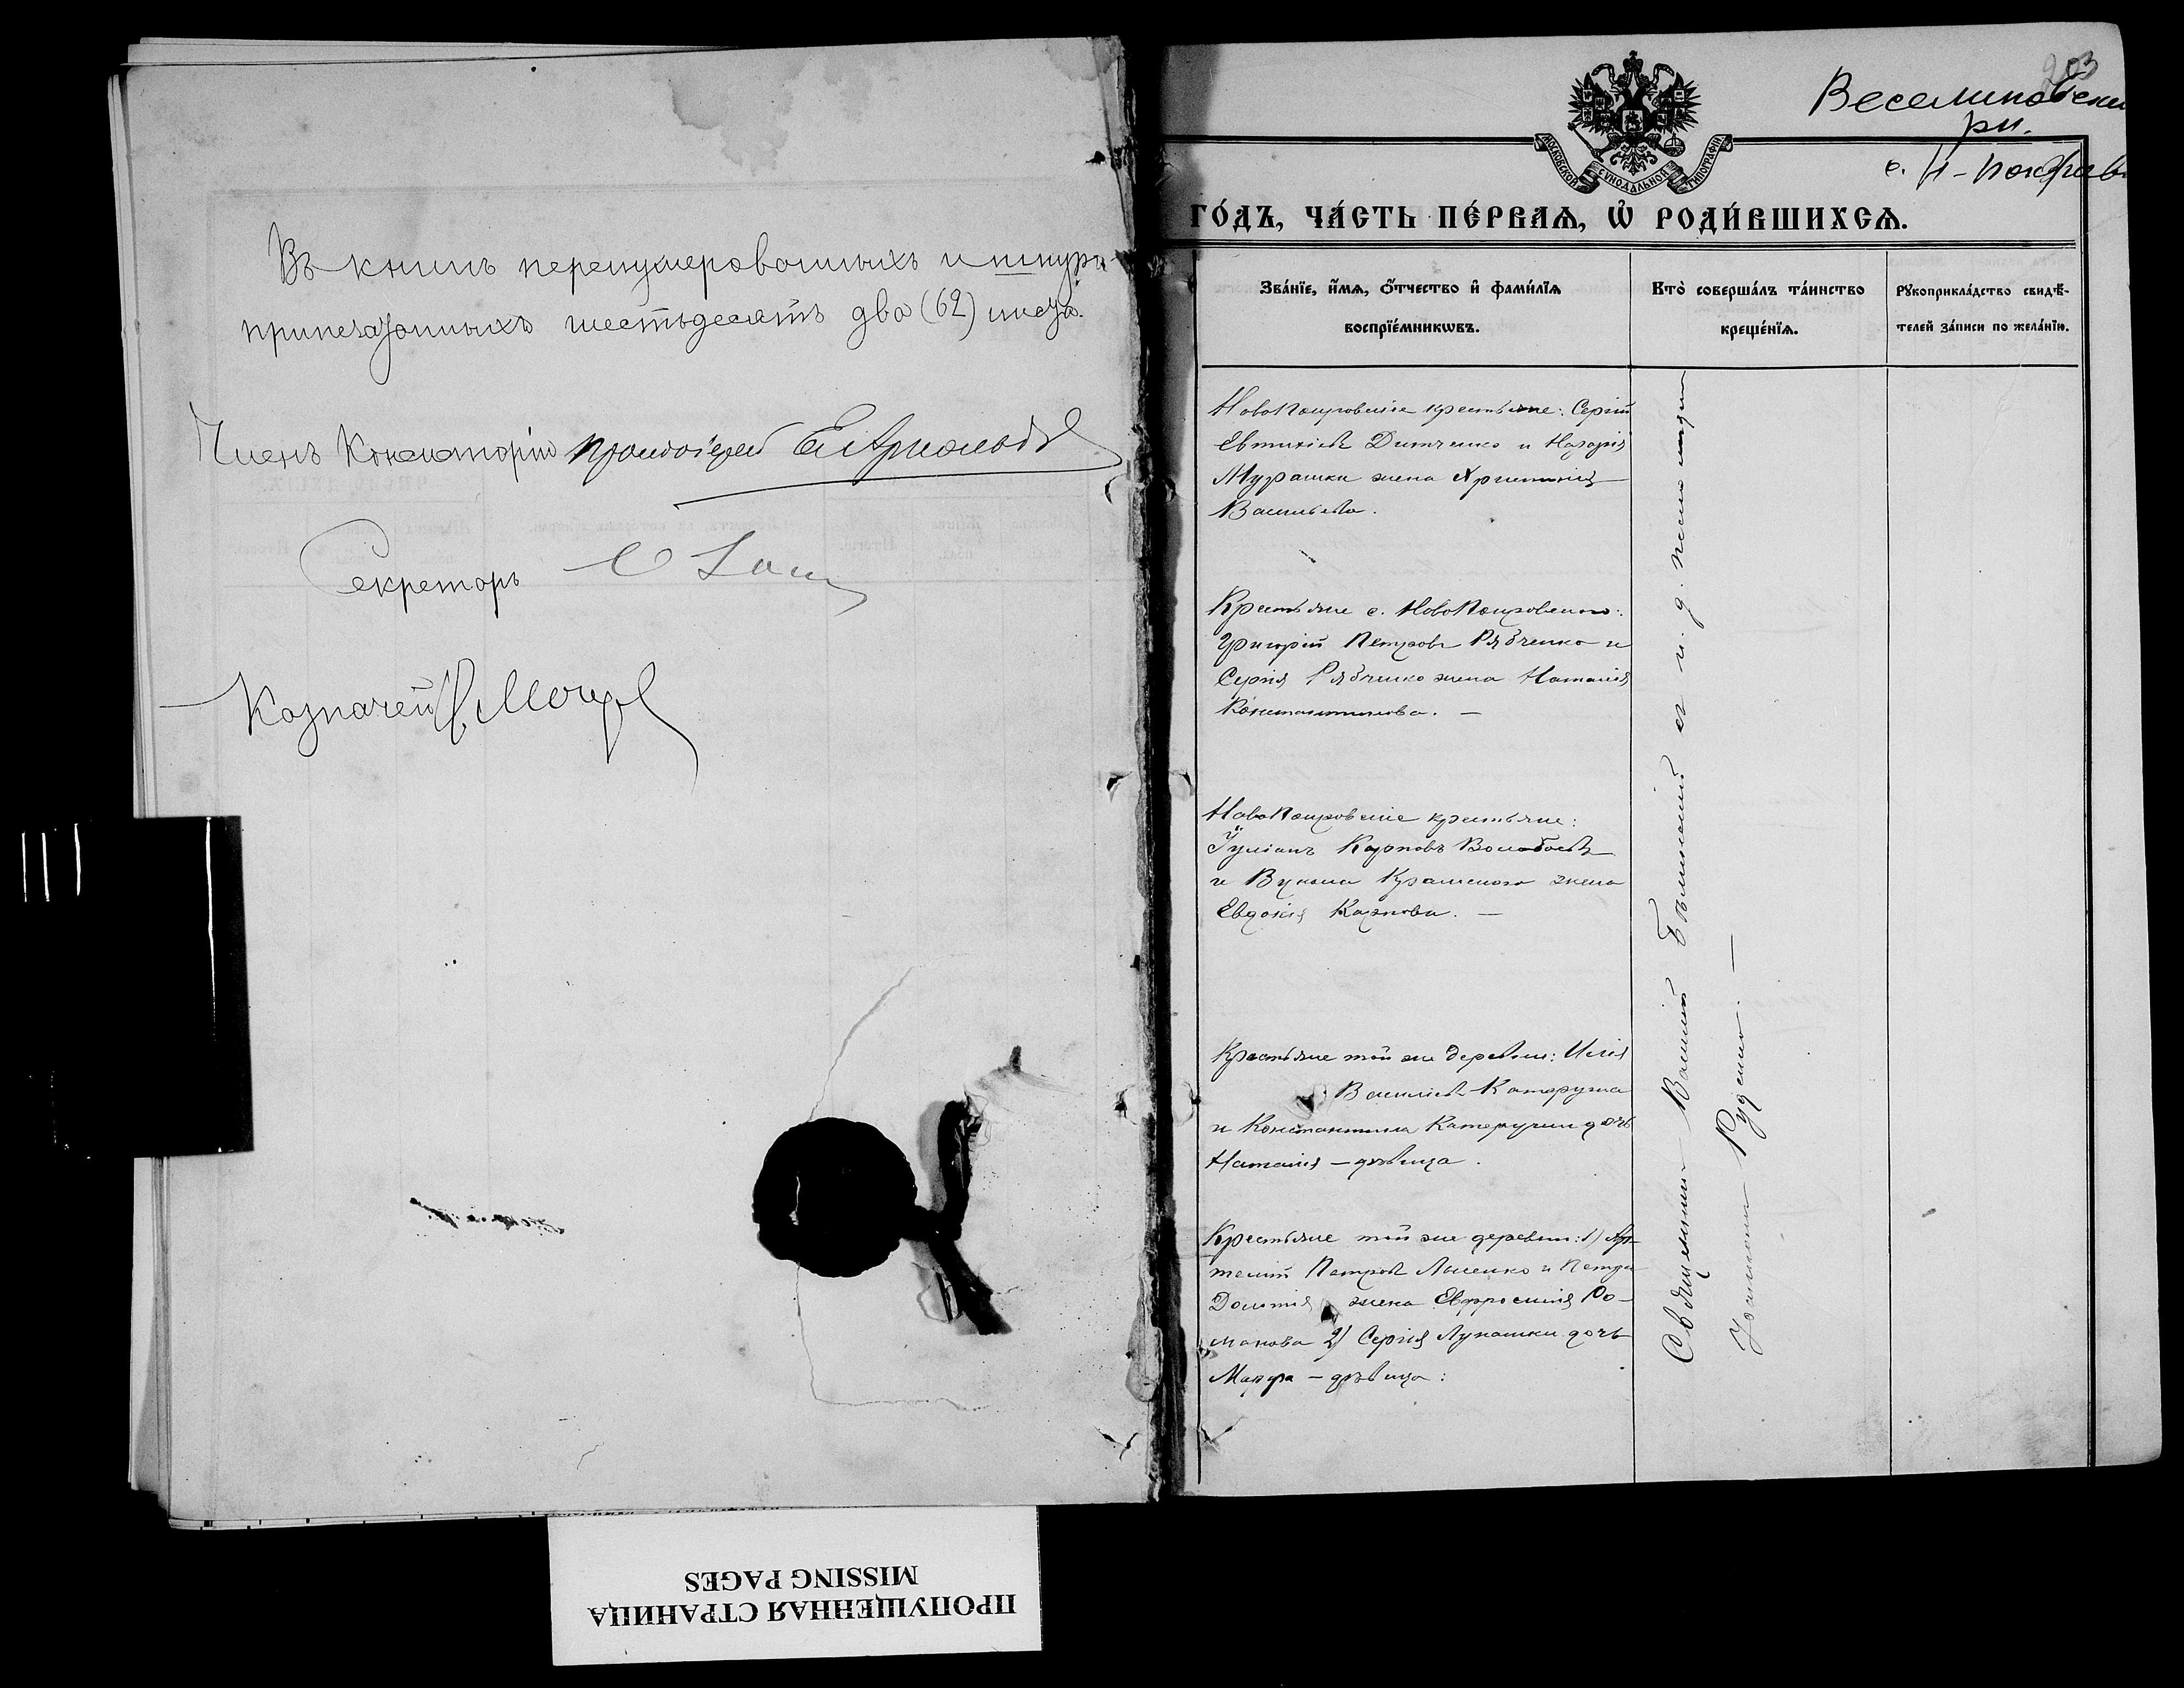 Въ книгѣ перенумерованныхъ и шнуро-
припечатанныхъ шестьдесятъ два (62) листа.
Членъ Консисторіи Протоіерей
Секретарь
Казначей
203
Веселиновский
рн.
с. Н-Покровка
МОСКОВСКОЙ СѴНОДАЛЬНОЙ ТИПОГРАФІИ
ГО́ДЪ, ЧА́СТЬ ПЕ́РВАѦ, Ѡ҆ РОДИ́ВШИХСѦ.
Зва́нїе, и҆́мѧ, ѻ҆́тчество и҆ фами́лїѧ
воспрїе́мникѡвъ.
Кто̀ соверша́лъ та́инство
креще́нїѧ.
Рꙋкоприкла́дство свидѣ́-
телей за́писи по жела́нїю.
НовоПокровскіе крестьяне: Сергій
Евтихіевъ Дитченко и Назарія
Мурашки жена Христинія
Васильева.
Крестьяне с. НовоПокровского:
Григорій Петровъ Рябченко и
Сергія Рябченко жена Наталія
Константинова. —
НовоПокровскіе крестьяне:
Іуліанъ Карповъ Волобоевъ
и Вукола Крамского жена
Евдокія Карпова. —
Крестьяне той же деревни: Илія
Василіевъ Катеруша
и Константина Катеруши дочь
Наталія — дѣвица.
Крестьяне той же деревни: 1) Ар-
темій Петровъ Лысенко и Петра
жена Евфросинія Ро-
манова 2) Сергія Лукашки дочь
Мавра — дѣвица:
Священникъ Василій и. д. псаломщика
Руденко. —
ПРОПУЩЕННАЯ СТРАНИЦА
MISSING PAGES